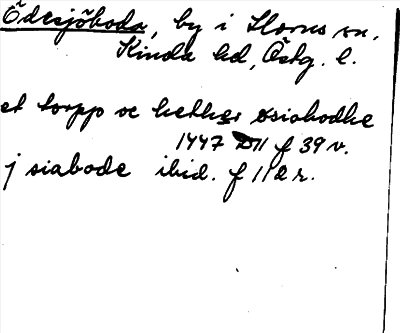 Ödesjöboda, by i Horns sn.
Kinda hd, Östg. l.
et torpp oc hether øsiabodhe
1447 f 39 v.
j siabode ibid. f 112 r.